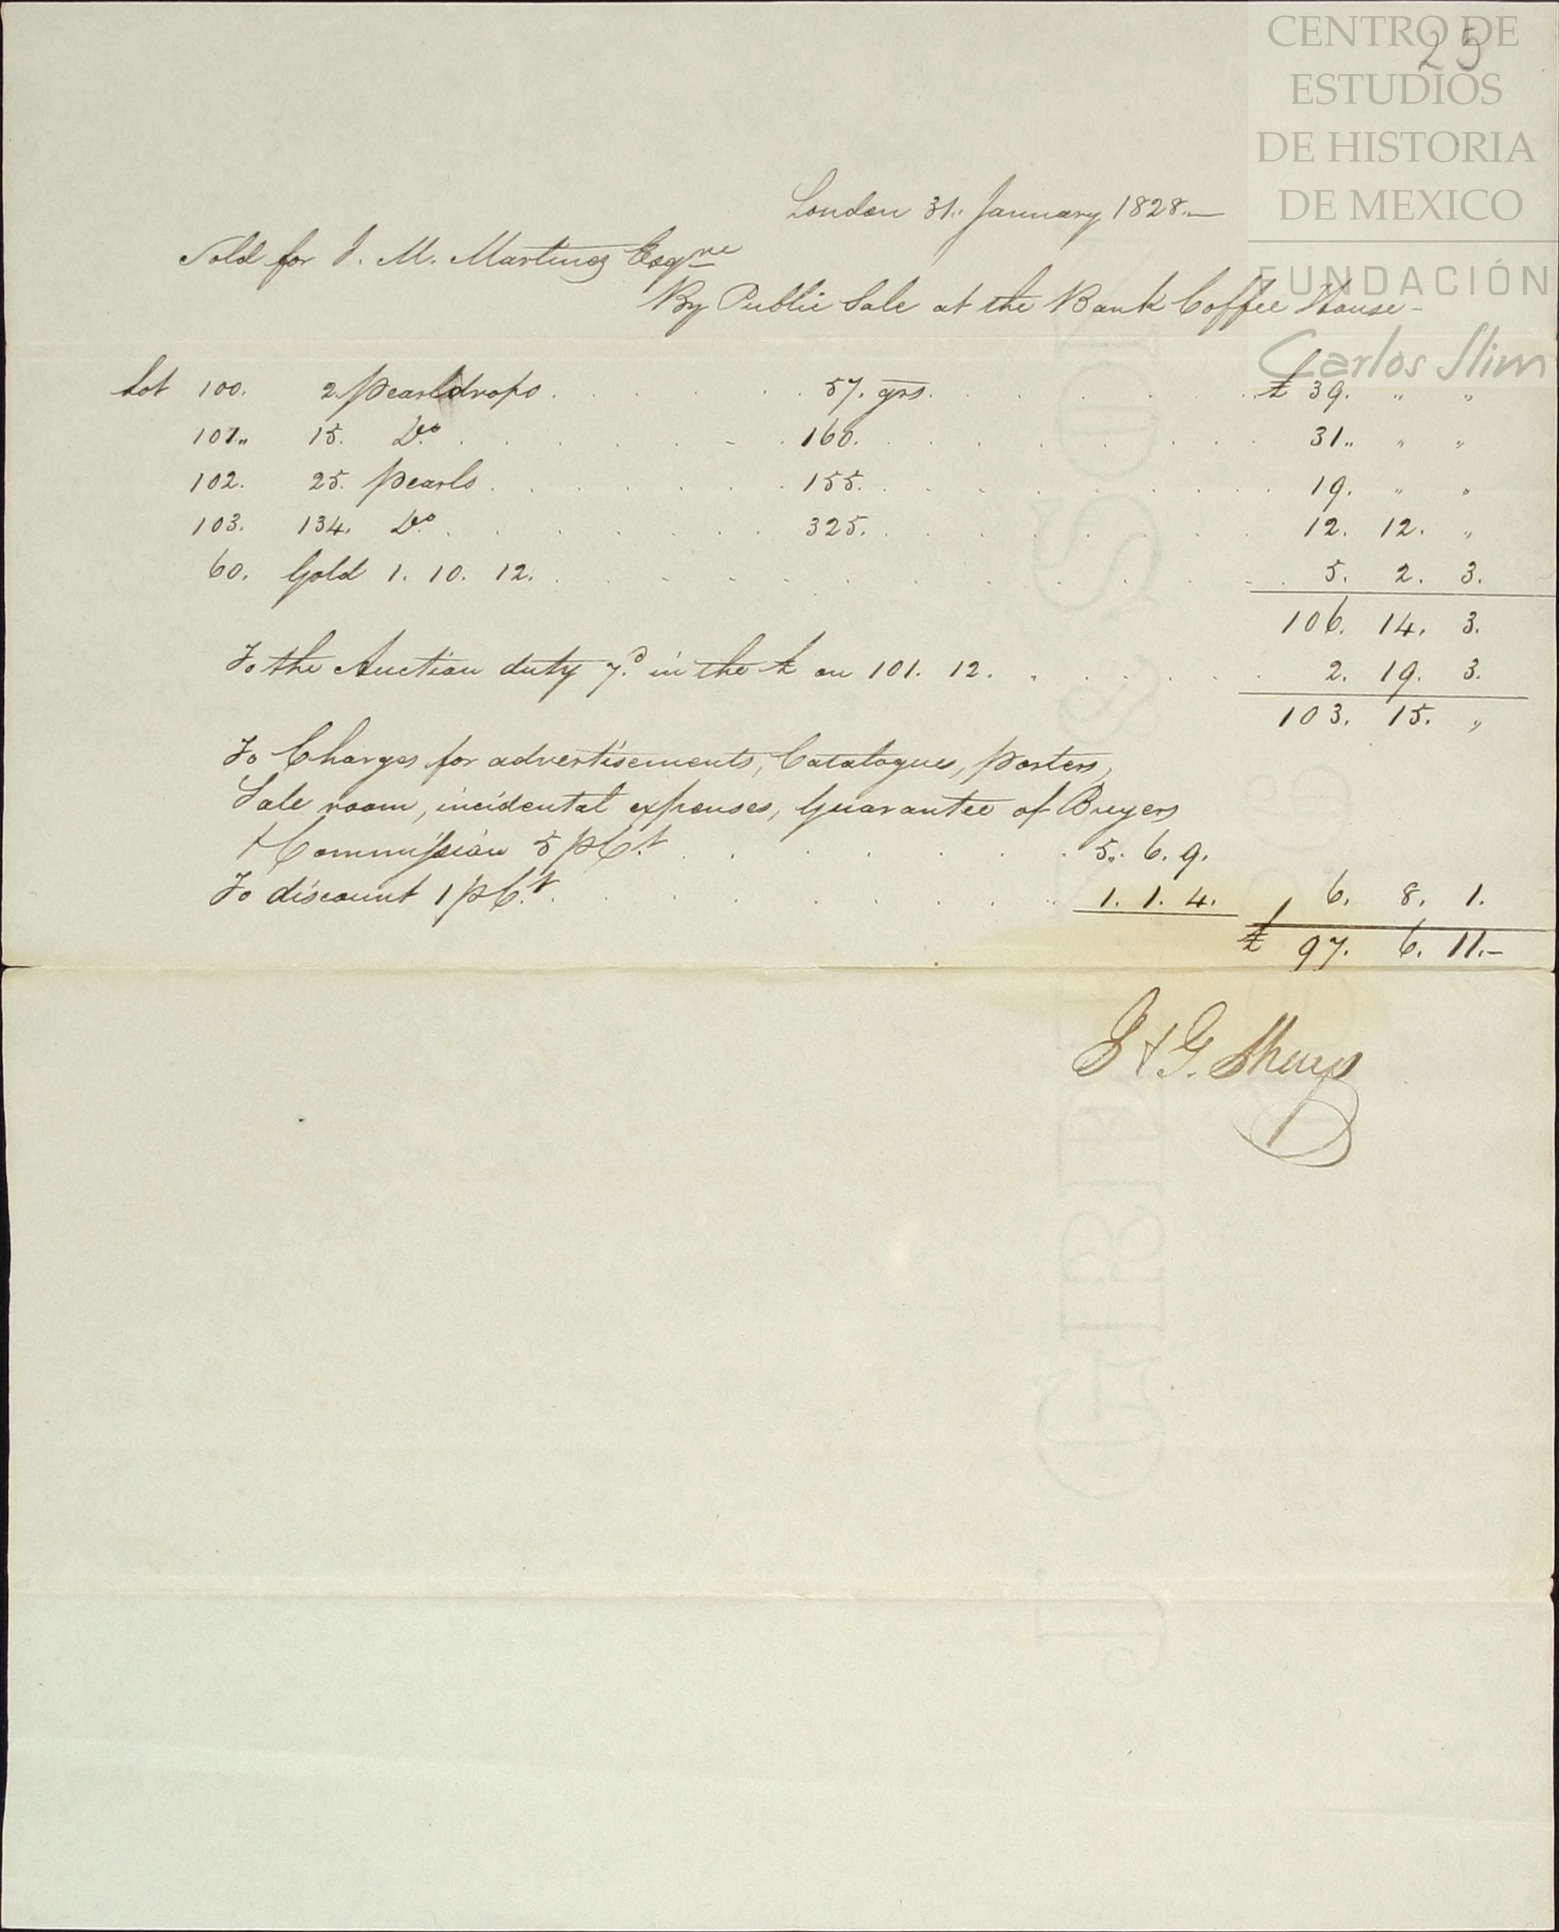 CENTRO DE
25
ESTUDIOS
DE HISTORIA
DE MEXICO
FUNDACIÓN
Carlos Slim
London 31. January 1828.—
Sold for J. M. Martinez Esqre
By Public Sale at the Bank Coffee House —
Lot 100. 2 pearldrops . . . 57. grs. . . . £ 39. " "
101. 15. Do . . . 160. . . . 31. " "
102. 25. pearls . . . 155. . . . 19. " "
103. 134. Do . . . 325. . . . 12. 12. "
60. Gold 1. 10. 12. . . . 5. 2. 3.
106. 14. 3.
To the Auction duty 7d in the £ on 101. 12. . . . 2. 19. 3.
103. 15. "
To Charges for advertisements, Catalogues, porters,
Sale room, incidental expenses, Guarantee of Buyers
& Commission 5 pCt . . . 5. 6. 9.
To discount 1 pCt . . . 1. 1. 4. 6. 8. 1.
£ 97. 6. 11.—
J & G. Sharp
J GREEN & SON